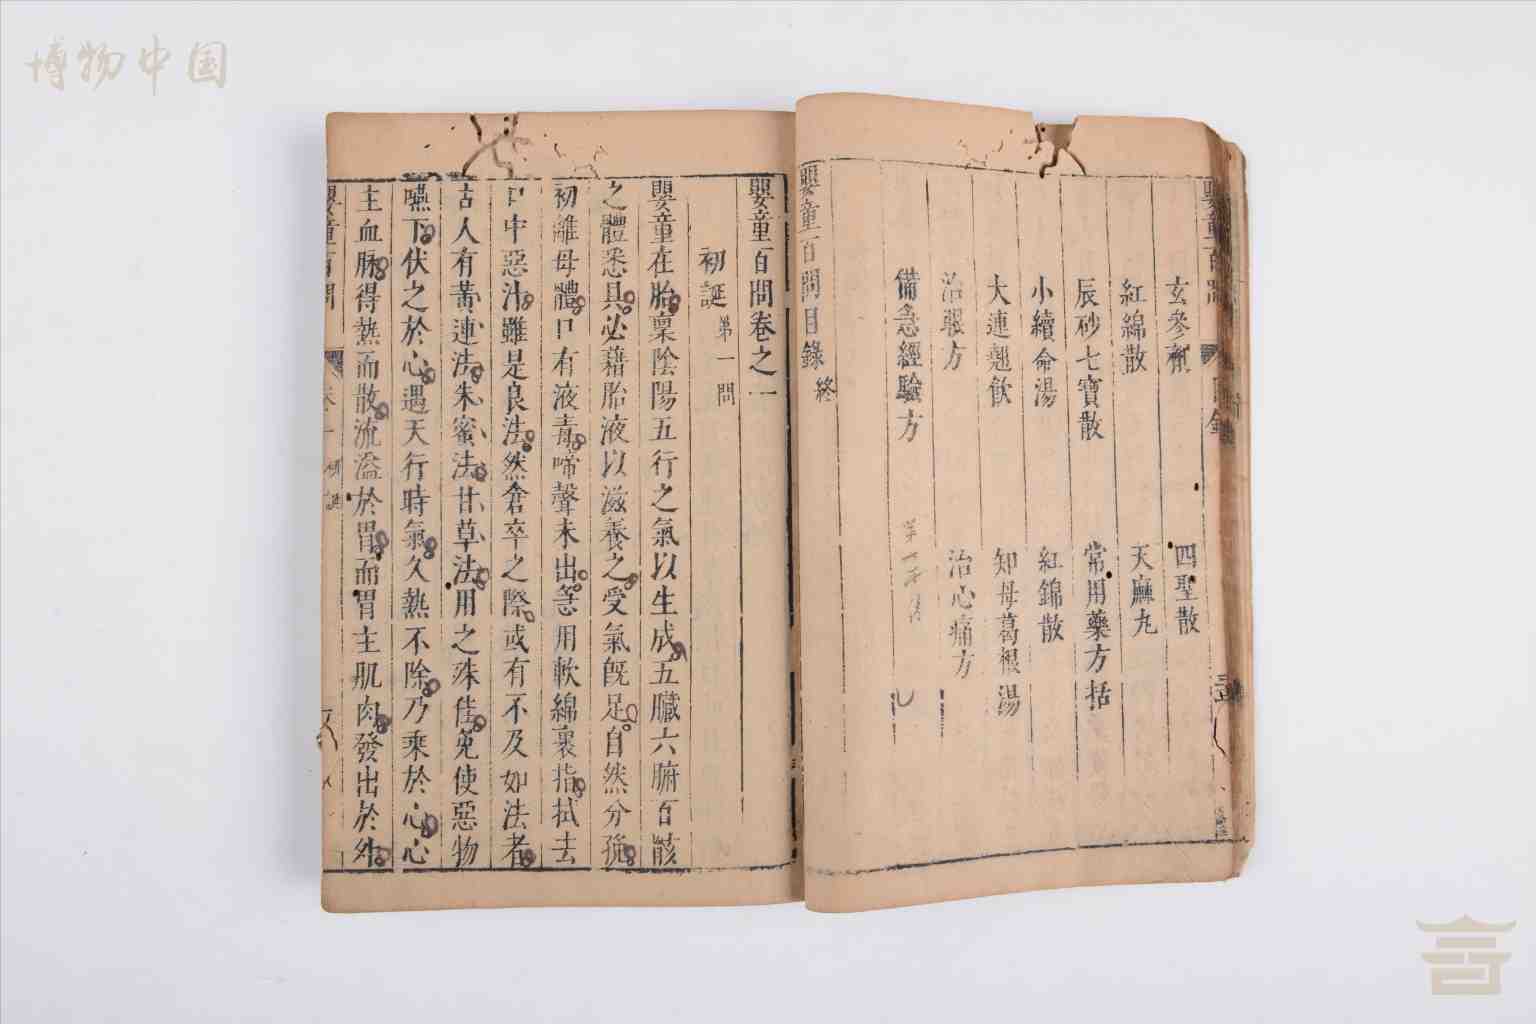 博物中国
玄參劑　四聖散
紅綿散　天麻丸
辰砂七寶散　常用藥方括
小續命湯　紅錦散
大連翹飲　知母葛根湯
治嗽方　治心痛方
備急經驗方
嬰童百問目錄終
嬰童百問卷之一
初誕第一問
嬰童在胎稟陰陽五行之氣以生成五臟六腑百骸
之體悉具必藉胎液以滋養之受氣既足自然分娩
初離母體口有液毒啼聲未出急用軟綿裹指拭去
口中惡汁雖是良法然倉卒之際或有不及如法者
古人有黃連法朱蜜法甘草法用之殊佳免使惡物
嚥下伏之於心遇天行時氣久熱不除乃乘於心心
主血脉得熱而散流溢於胃而胃主肌肉發出於外